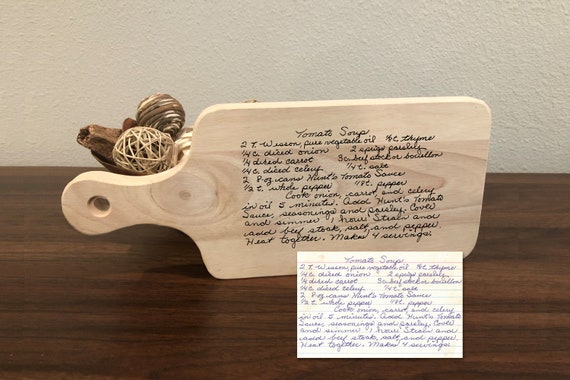 Tomato Soup
2 T. Wesson pure vegetable oil ⅛ t. thyme
¼ c. diced onion 2 sprigs parsley
¼ diced carrot 3 c. beef stock or bouillon
¼ c. diced celery ¼ t. salt
2 8-oz. cans Hunt's Tomato Sauce
½ t. whole pepper ⅛ t. pepper
Cook onion, carrot, and celery
in oil 5 minutes. Add Hunt's Tomato
Sauce, seasonings and parsley. Cover
and simmer 1 hour. Strain and
add beef stock, salt, and pepper.
Heat together. Makes 4 servings.
Tomato Soup
2 T. Wesson pure vegetable oil ⅛ t. thyme
¼ c. diced onion 2 sprigs parsley
¼ diced carrot 3 c. beef stock or bouillon
¼ c. diced celery ¼ t. salt
2 8-oz. cans Hunt's Tomato Sauce
½ t. whole pepper ⅛ t. pepper
Cook onion, carrot, and celery
in oil 5 minutes. Add Hunt's Tomato
Sauce, seasonings and parsley. Cover
and simmer 1 hour. Strain and
add beef stock, salt, and pepper.
Heat together. Makes 4 servings.